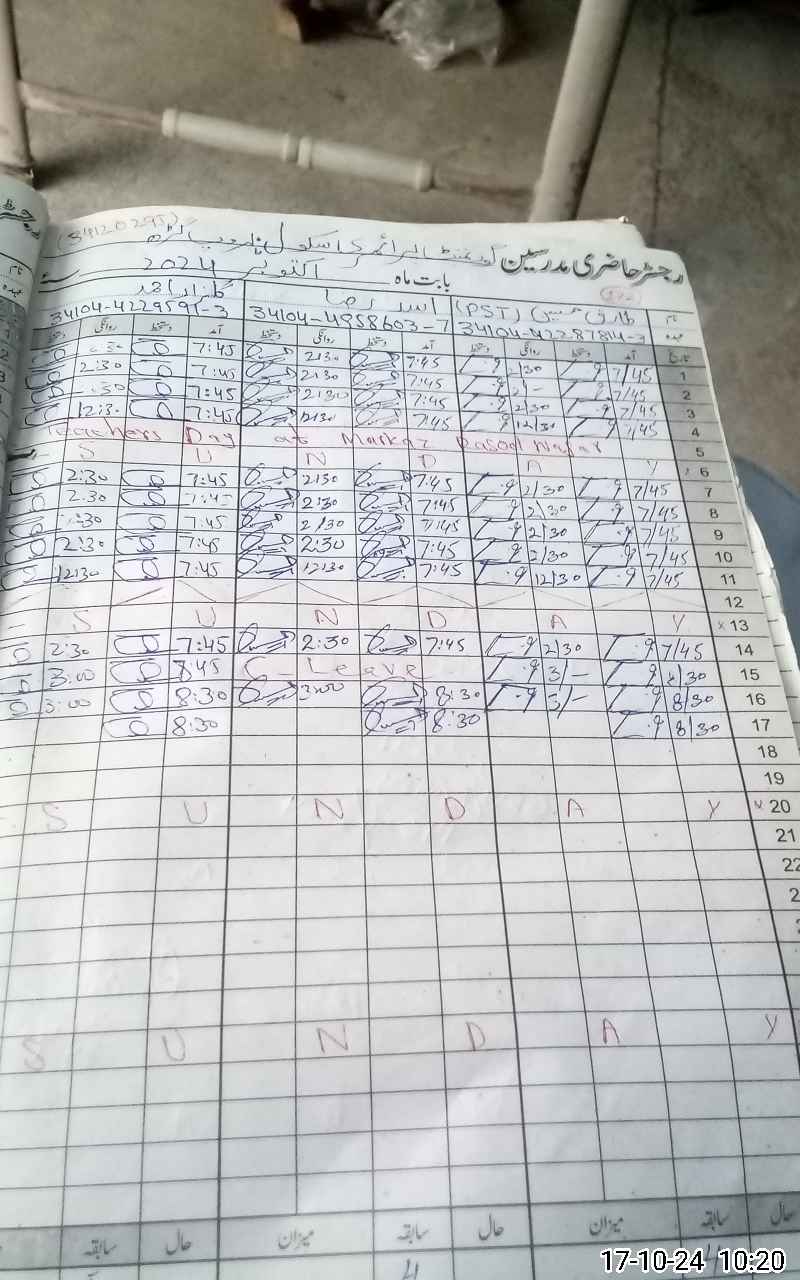 رجسٹر حاضری مدرسین گورنمنٹ پرائمری اسکول
(34120295)
بابت ماہ اکتوبر 2024ء
نام طارق (PST) اسد رضا گلزار احمد
عہدہ 34104-4228781-3 34104-4958603-7 34104-4229591-3
تاریخ آمد دستخط روانگی دستخط آمد دستخط روانگی دستخط آمد دستخط روانگی دستخط
1 7/45 2/30 7:45 2:30 7:45
2 7/45 2/- 7:45 2:30 7:45 2:30
3 7/45 2/30 7:45 2:30 7:45
4 7/45 12/30 7:45 12:30 7:45 12:30
5 Teachers Day at Markaz
6 S U N D A Y
7 7/45 2/30 7:45 2:30 7:45 2:30
8 7/45 2/30 7:45 2:30 7:45 2:30
9 7/45 2/30 7:45 2/30 7:45
10 7/45 2/30 7:45 2:30 7:45 2:30
11 7/45 12/30 7:45 12:30 7:45 12:30
12
x 13 S U N D A Y
14 7/45 2/30 7:45 2:30 7:45 2:30
15 8/30 3/- C-Leave 8:45 3:00
16 8/30 3/- 8:30 3:00 8:30 3:00
17 8/30 8:30 8:30
18
19
20 S U N D A Y
21
22
S U N D A Y
حال سابقہ میزان حال سابقہ میزان حال سابقہ
17-10-24 10:20